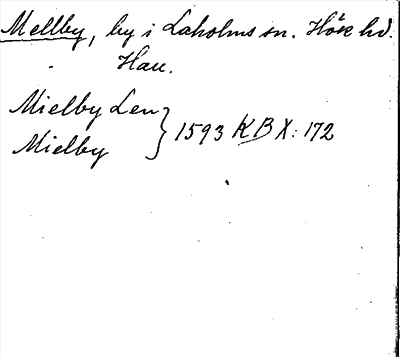 Mellby, by i Laholms sn. Höks hd.
Hall.
Mielby Len
Mielby } 1593 KB X: 172